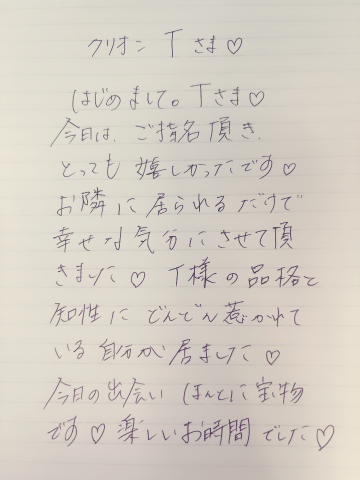 クリオン Tさま♡
はじめまして。Tさま♡
今日は、ご指名頂き、
とっても嬉しかったです♡
お隣に居られるだけで
幸せな気分にさせて頂
きました♡ T様の品格と
知性にどんどん惹かれて
いる自分が居ました♡
今日の出会いほんとに宝物
です♡楽しいお時間でした♡